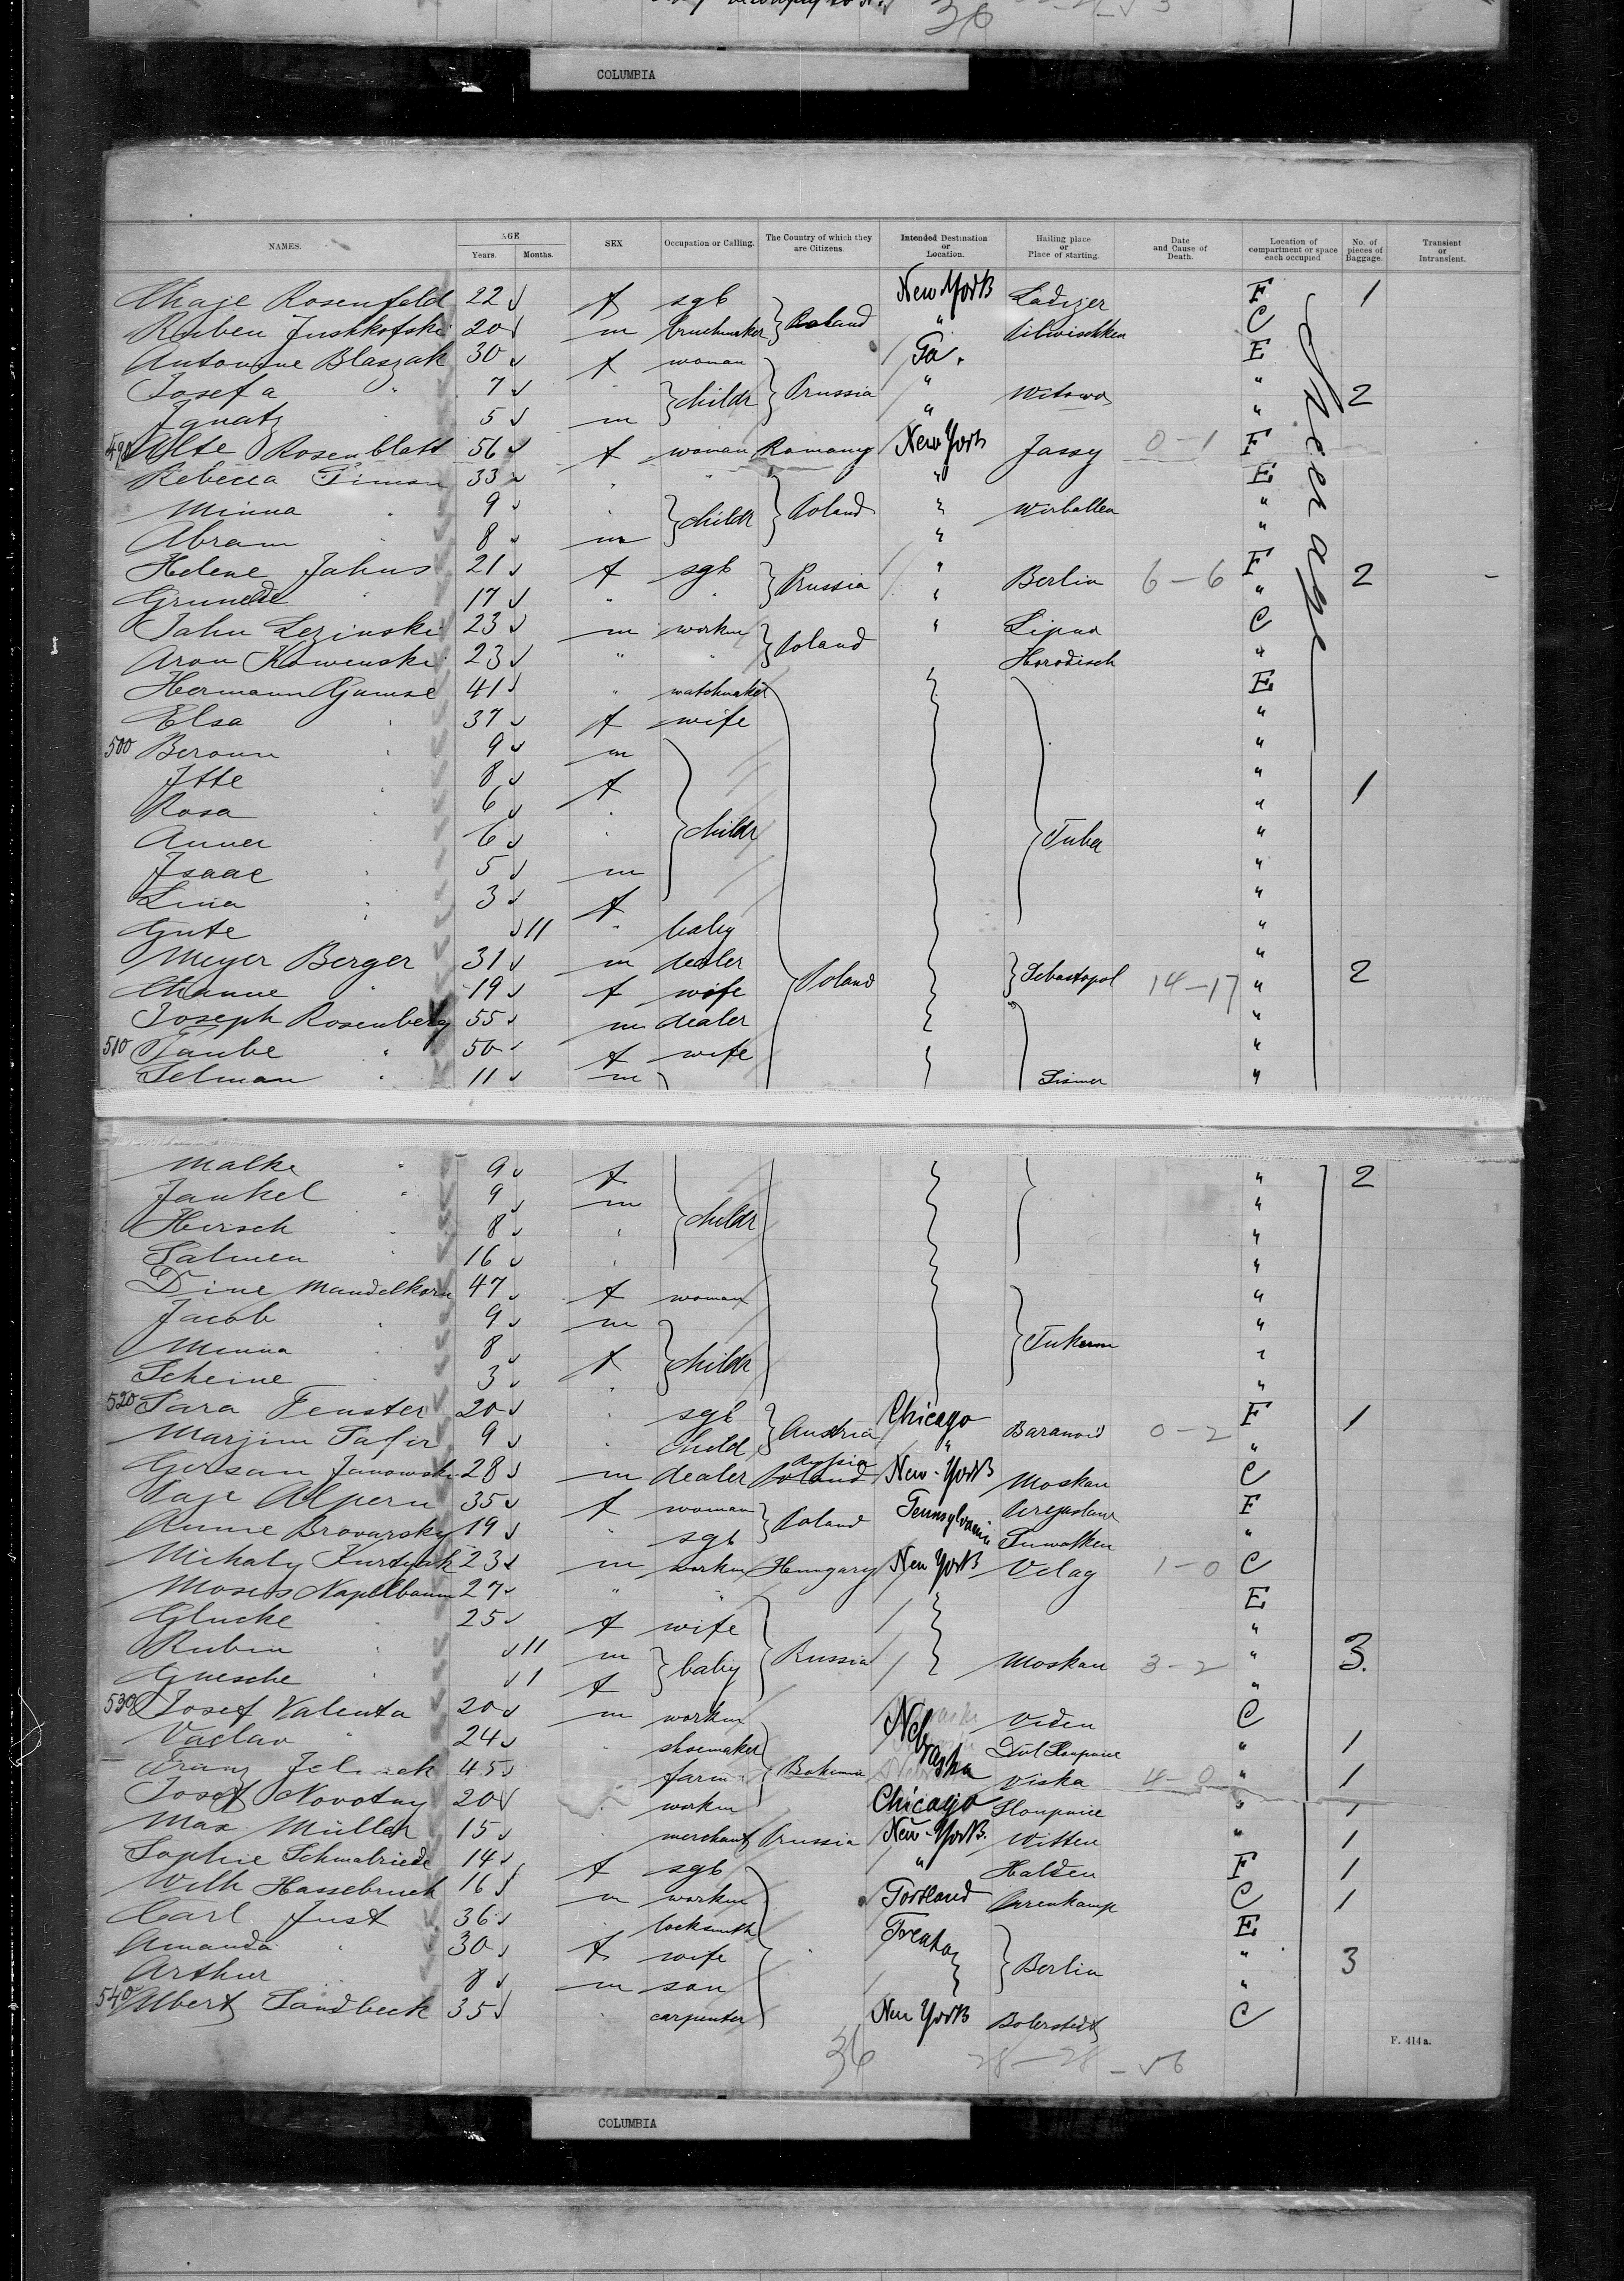 36
COLUMBIA
NAMES. AGE Years. Months. SEX Occupation or Calling. The Country of which they are Citizens. Intended Destination or Location. Hailing place or Place of starting. Date and Cause of Death. Location of compartment or space each occupied No. of pieces of Baggage. Transient or Intransient.
Chaje Rosenfeld 22 f sgl New York F 1
Ruben Jushkofski 20 m Poland " C
Antonine Blaszak 30 f woman Pa. E
Josefa " 7 " childr Prussia " Witowo " 2
Ignatz 5 m " "
490 Alte Rosenblatt 56 f woman Romany New York Jassy 0-1 F
Rebecca 33 " " " E
Minna 9 " childr Poland " Wirballen "
Abram 8 m " "
Helene Jahns 21 f sgl Prussia " Berlin 6-6 F 2
17 " " " "
John Lezinski 23 m workm Poland " Lipno C
Aron Kowenski 23 " " Horodisch "
Hermann 41 " watchmaker E
Elsa 37 f wife "
500 9 m "
Itte 8 f " 1
Rosa 6 " childr "
6 "
Isaac 5 m "
Lina 3 f "
Gute 11 " baby "
Meyer Berger 31 m dealer Poland Sebastopol 14-17 " 2
Channe " 19 f wife "
Joseph Rosenberg 55 m dealer "
510 Taube " 50 f wife "
Selman " 11 m "
Steerage
Malke " 9 f " 2
Jankel " 9 m "
Hirsch 8 " childr "
Salmen 16 " "
Dine Mandelkorn 47 f woman "
Jacob 9 m "
Minna 8 f childr "
Scheine 3 " "
520 Sara Fenster 20 " sgl Austria Chicago 0-2 F 1
Safir 9 " child " "
Gersan Janowski 28 m dealer New-York Moskau C
Alpern 35 f woman Poland Pennsylvania F
Anne Brovarsky 19 " sgl " Suwalken "
Mihaly 23 m workm Hungary New York Velag 1-0 C
Moses Nagelbaum 27 " " E
Glucke 25 f wife "
Rubin 11 m baby Russia Moskau 3-2 " 3.
1 f "
530 Josef Valenta 20 m workm Nebraska C
Vaclav " 24 " shoemaker " 1
Franz 45 " farm Bohemia Viska 4-0 " 1
Josef Novotny 20 " workm Chicago Sloupnice " 1
Max Müller 15 " merchant Prussia New-York. Witten " 1
Sophie Schmalriede 14 f sgl " Halden F 1
Wilh Hassebruck 16 m workm Portland C 1
Carl Just 36 " locksmith E
Amanda " 30 f wife Berlin " 3
Arthur 8 m son "
540 Albert Sandbeck 35 " carpenter New York C
36 28-28-56
F. 414a.
COLUMBIA